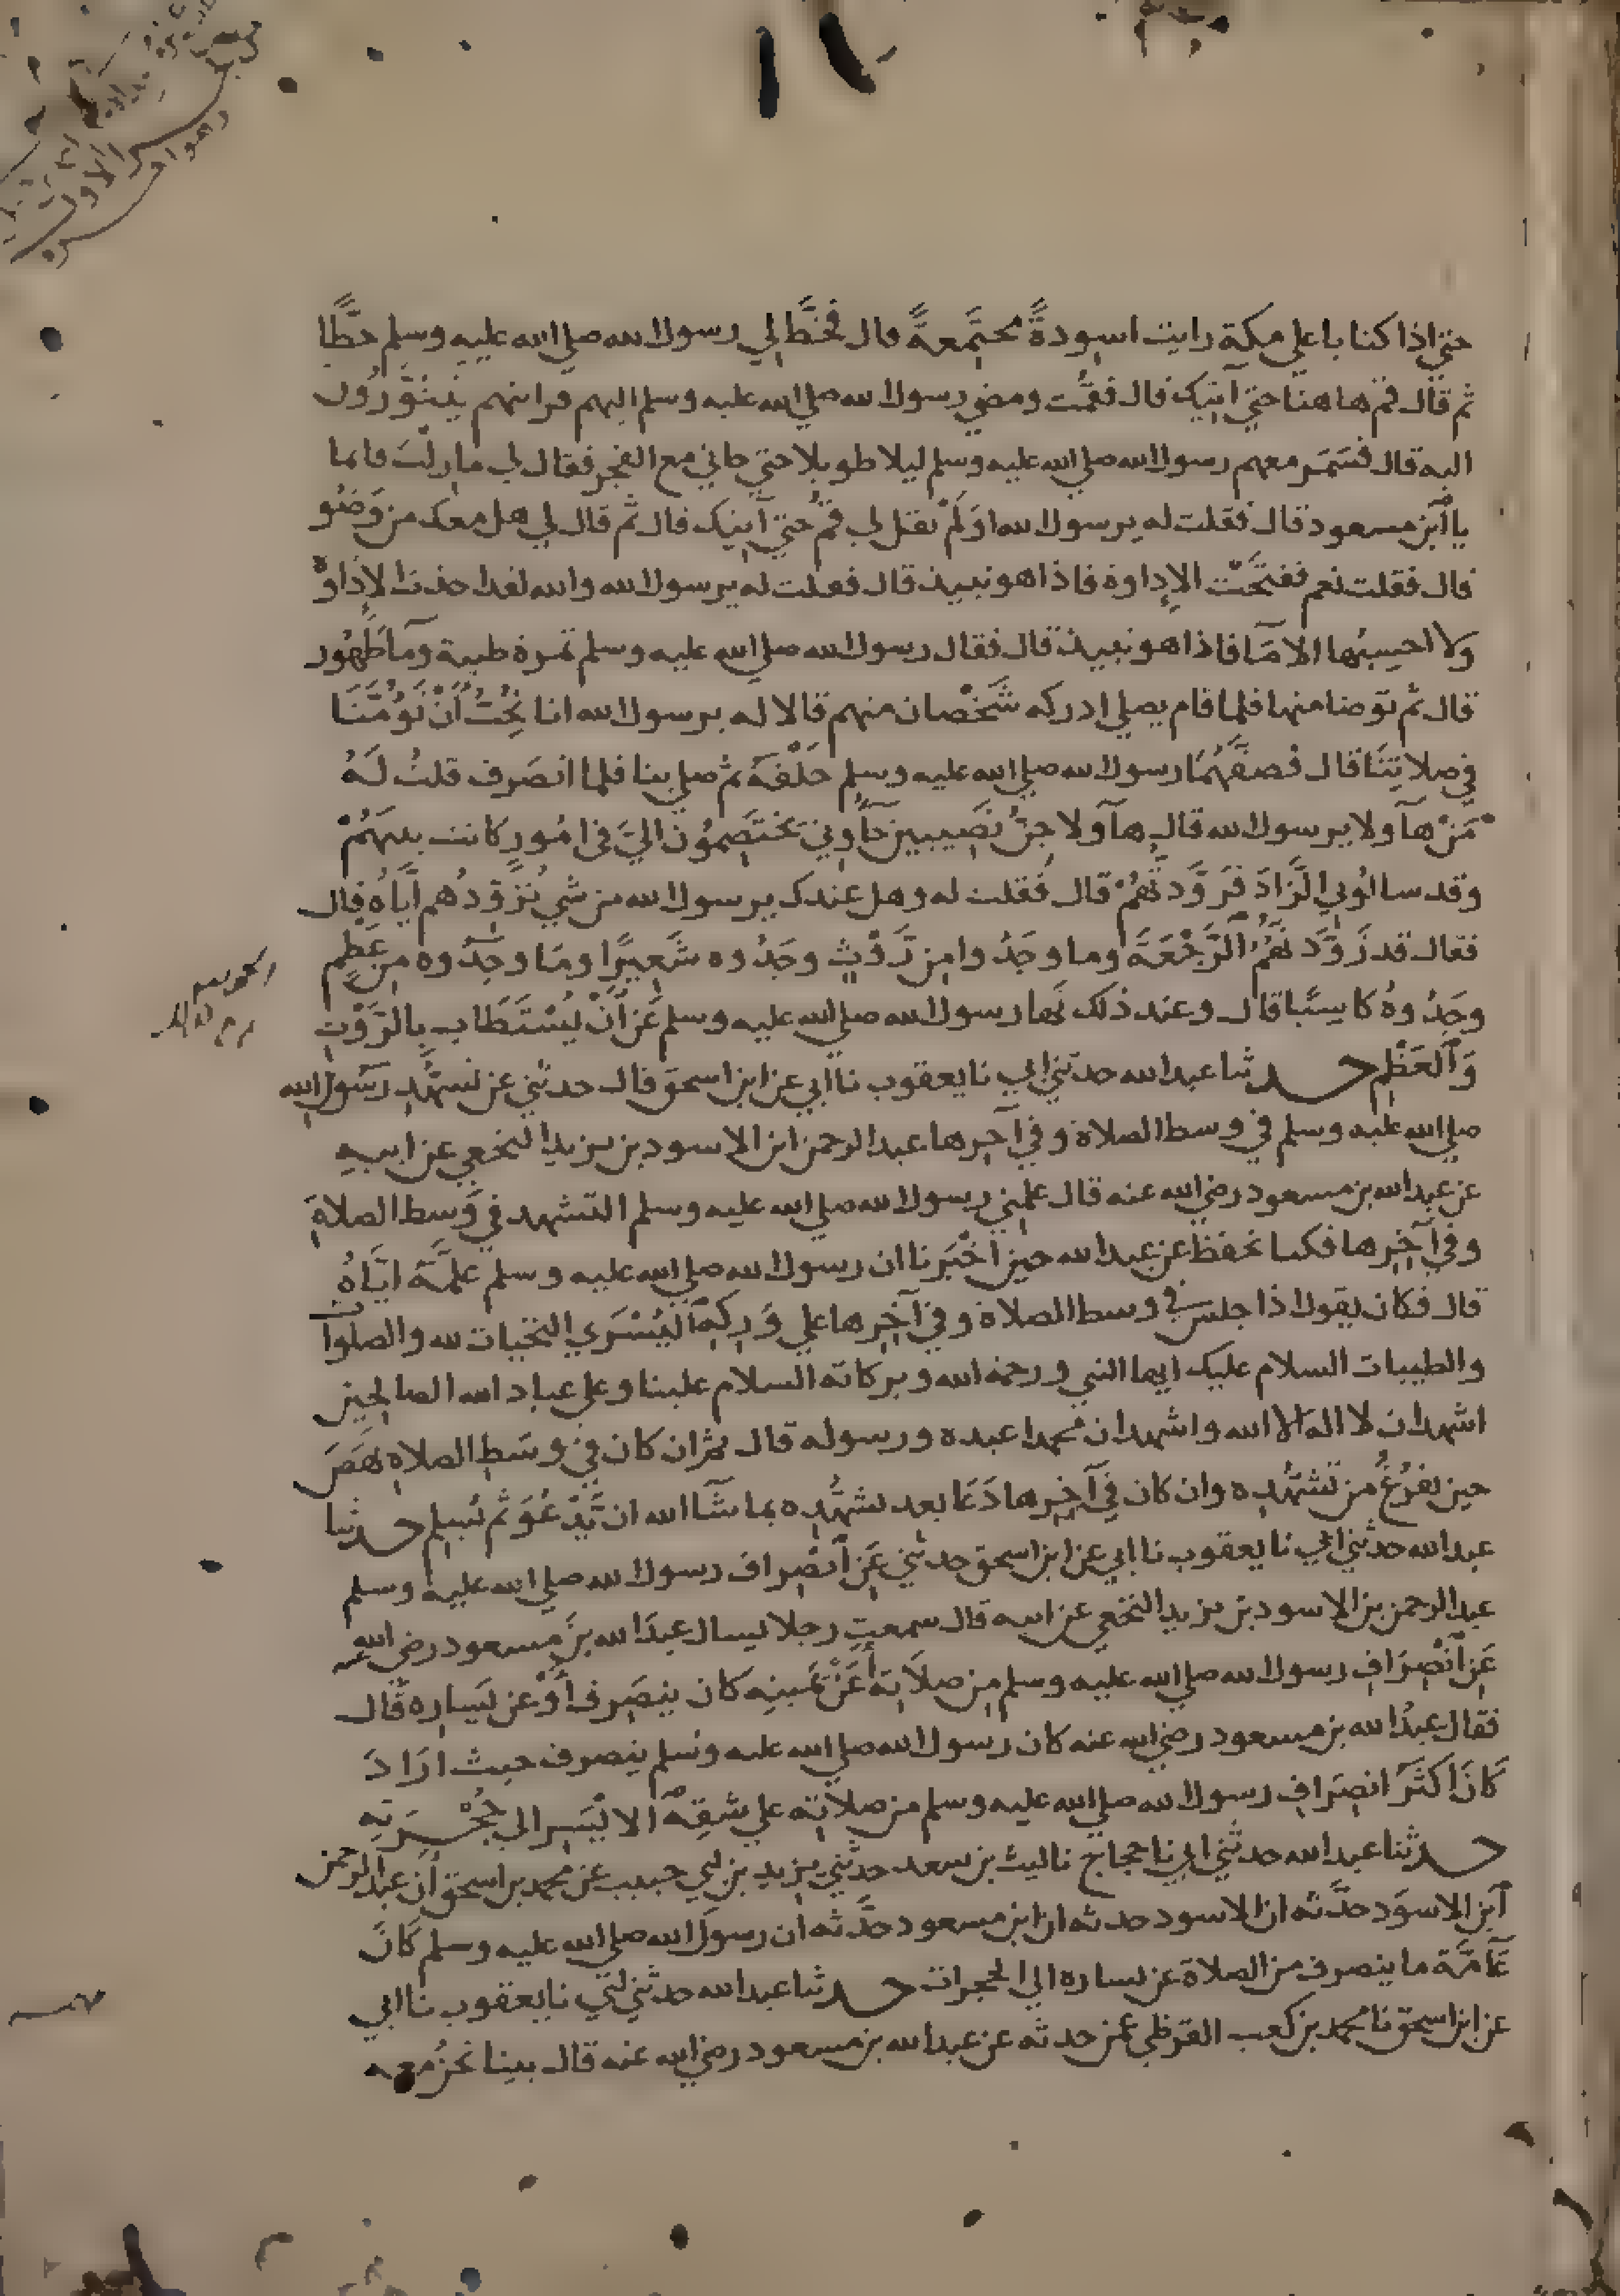 حتي اذا كنا باعلي مكة رايت اسودة مجتمعة قال فخط لي رسول الله صلي الله عليه وسلم خطا
ثم قال قم هاهنا حتي آتيك قال فقمت ومضي رسول الله صلي الله عليه وسلم اليهم فراتهم يتثورون
اليه قال فسمر معهم رسول الله صلي الله عليه وسلم ليلا طويلا حتي جاني مع الفجر فقال لي ما زلت قائما
يا ابن مسعود قال فقلت له يرسول الله اولم تقل لي قم حتي آتيك قال ثم قال لي هل معك من وضو
قال فقلت نعم ففتحت الإداوة فاذا هو نبيذ قال فقلت له يرسول الله والله لقد اخذت الإداوة
ولا احسبها الا مآ فاذا هو نبيذ قال فقال رسول الله صلي الله عليه وسلم تمرة طيبة ومآ طهور
قال ثم توضا منها فلما قام يصلي ادركه شخصان منهم قالا له يرسول الله انا نحب أن تؤمنا
في صلاتنا قال فصفهما رسول الله صلي الله عليه وسلم خلفه ثم صلي بنا فلما انصرف قلت له
من هآولا يرسول الله قال هآولا جن نصيبين جآوني يختصمون الي في امور كانت بينهم
وقد سالوني الزاد فزودتهم قال فقلت له وهل عندك يرسول الله من شي تزودهم اياه قال
فقال قد زودتهم الرجعة وما وجدوا من روث وجدوه شعيرا وما وجدوه من عظم
وجدوه كاسيا قال وعند ذلك نها رسول الله صلي الله عليه وسلم عن أن يستطاب بالروث
والعظم حدثنا عبد الله حدثني ابي نا يعقوب نا ابي عن ابن اسحق قال حدثني عن تشهد رسول الله
صلي الله عليه وسلم في وسط الصلاة وفي آخرها عبد الرحمن ابن الاسود بن يزيد النخعي عن ابيه
عن عبد الله بن مسعود رضي الله عنه قال علمني رسول الله صلي الله عليه وسلم التشهد في وسط الصلاة
وفي آخرها فكنا نحفظ عن عبد الله حين اخبرنا ان رسول الله صلي الله عليه وسلم علمه اياه
قال فكان يقول اذا جلس في وسط الصلاة وفي آخرها علي وركه اليسري التحيات لله والصلوات
والطيبات السلام عليك ايها النبي ورحمة الله وبركاته السلام علينا وعلي عباد الله الصالحين
اشهد ان لا اله الا الله واشهد ان محمدا عبده ورسوله قال ثم ان كان في وسط الصلاة نهض
حين يفرغ من تشهده وان كان في آخرها دعا بعد تشهده بما شآ الله ان يدعو ثم يسلم حدثنا
عبد الله حدثني ابي نا يعقوب نا ابي عن ابن اسحق حدثني عن انصراف رسول الله صلي الله عليه وسلم
عبد الرحمن بن الاسود بن يزيد النخعي عن ابيه قال سمعت رجلا يسال عبد الله بن مسعود رضي الله عنه
عن انصراف رسول الله صلي الله عليه وسلم من صلاته أعن يمينه كان ينصرف أو عن يساره قال
فقال عبد الله بن مسعود رضي الله عنه كان رسول الله صلي الله عليه وسلم ينصرف حيث اراد
كان اكثر انصراف رسول الله صلي الله عليه وسلم من صلاته علي شقه الايسر الي حجرته
حدثنا عبد الله حدثني ابي نا حجاج نا ليث بن سعد حدثني يزيد بن ابي حبيب عن محمد بن اسحق أن عبد الرحمن
ابن الاسود حدثه ان الاسود حدثه ان ابن مسعود حدثه ان رسول الله صلي الله عليه وسلم كان
عآمة ما ينصرف من الصلاة عن يساره الي الحجرات حدثنا عبد الله حدثني ابي نا يعقوب نا ابي
عن ابن اسحق نا محمد بن كعب القرظي عمن حدثه عن عبد الله بن مسعود رضي الله عنه قال بينا نحن معه